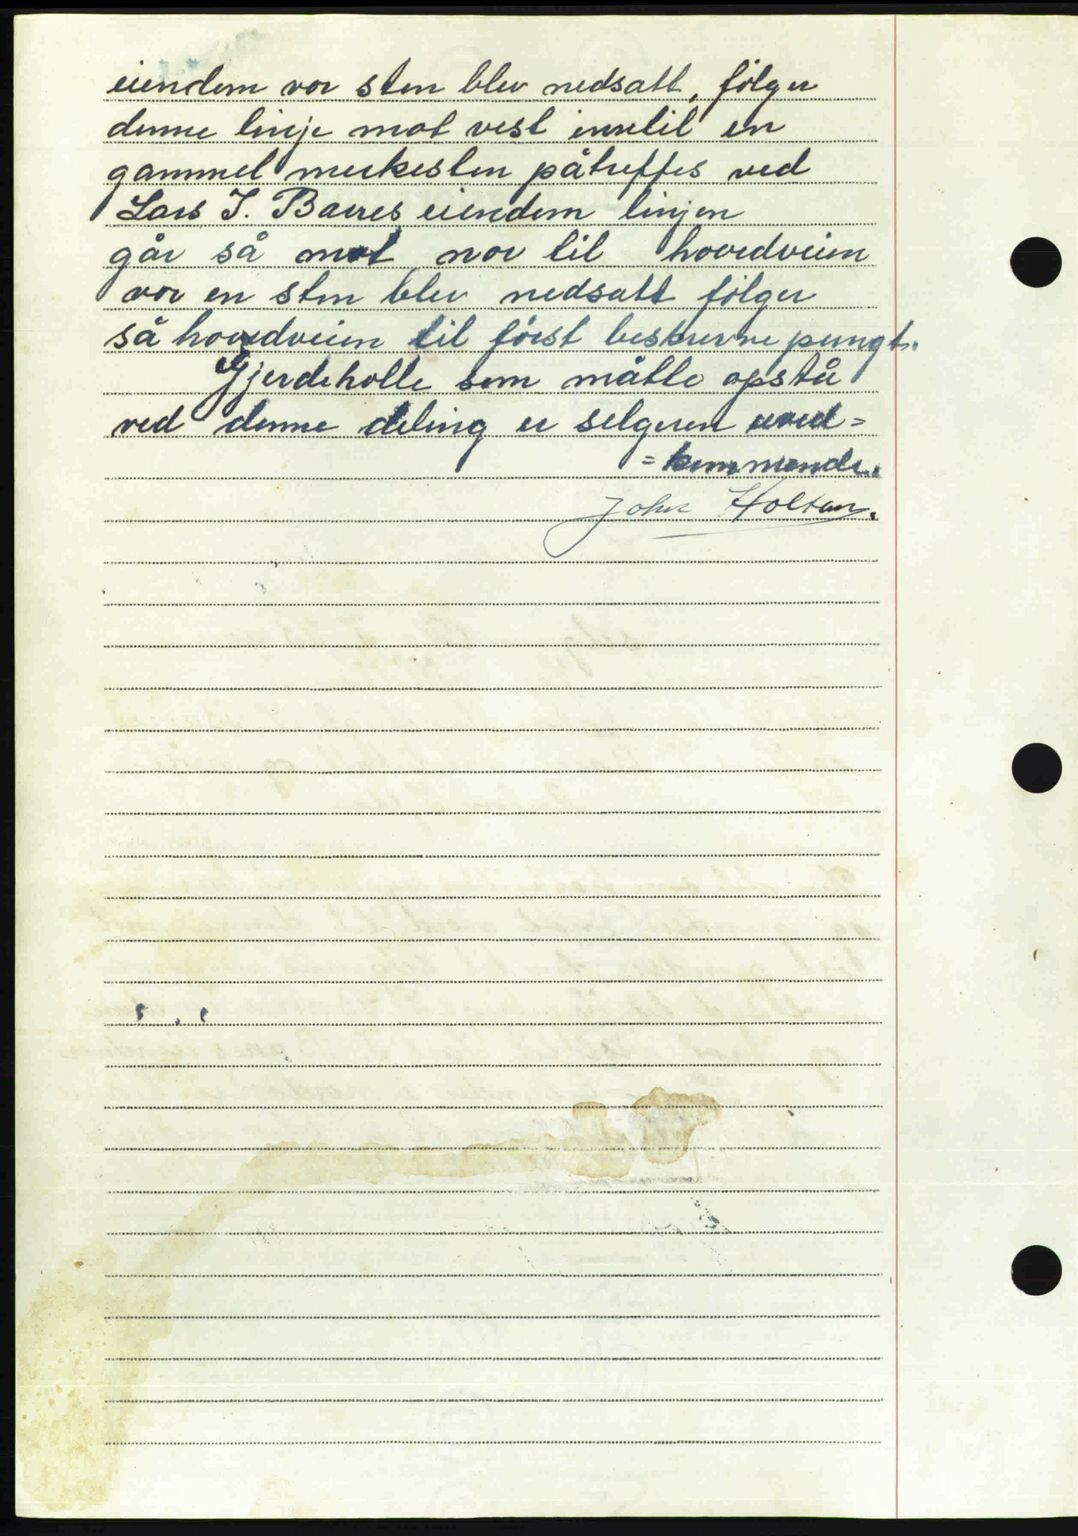 eiendem vor sten blev nedsatt, følger
denne linje mot vest inntil en
gammel merkesten påtreffes ved
Lars J. Baeres eiendem linjen
går så mot nor til hovedveien
vor en sten blev nedsatt følger
så hovedveien til først beskrevne pungt.
Gjerdeholle som måtte opstå
ved denne deling er selgeren uved=
=kommende.
John Holtan.